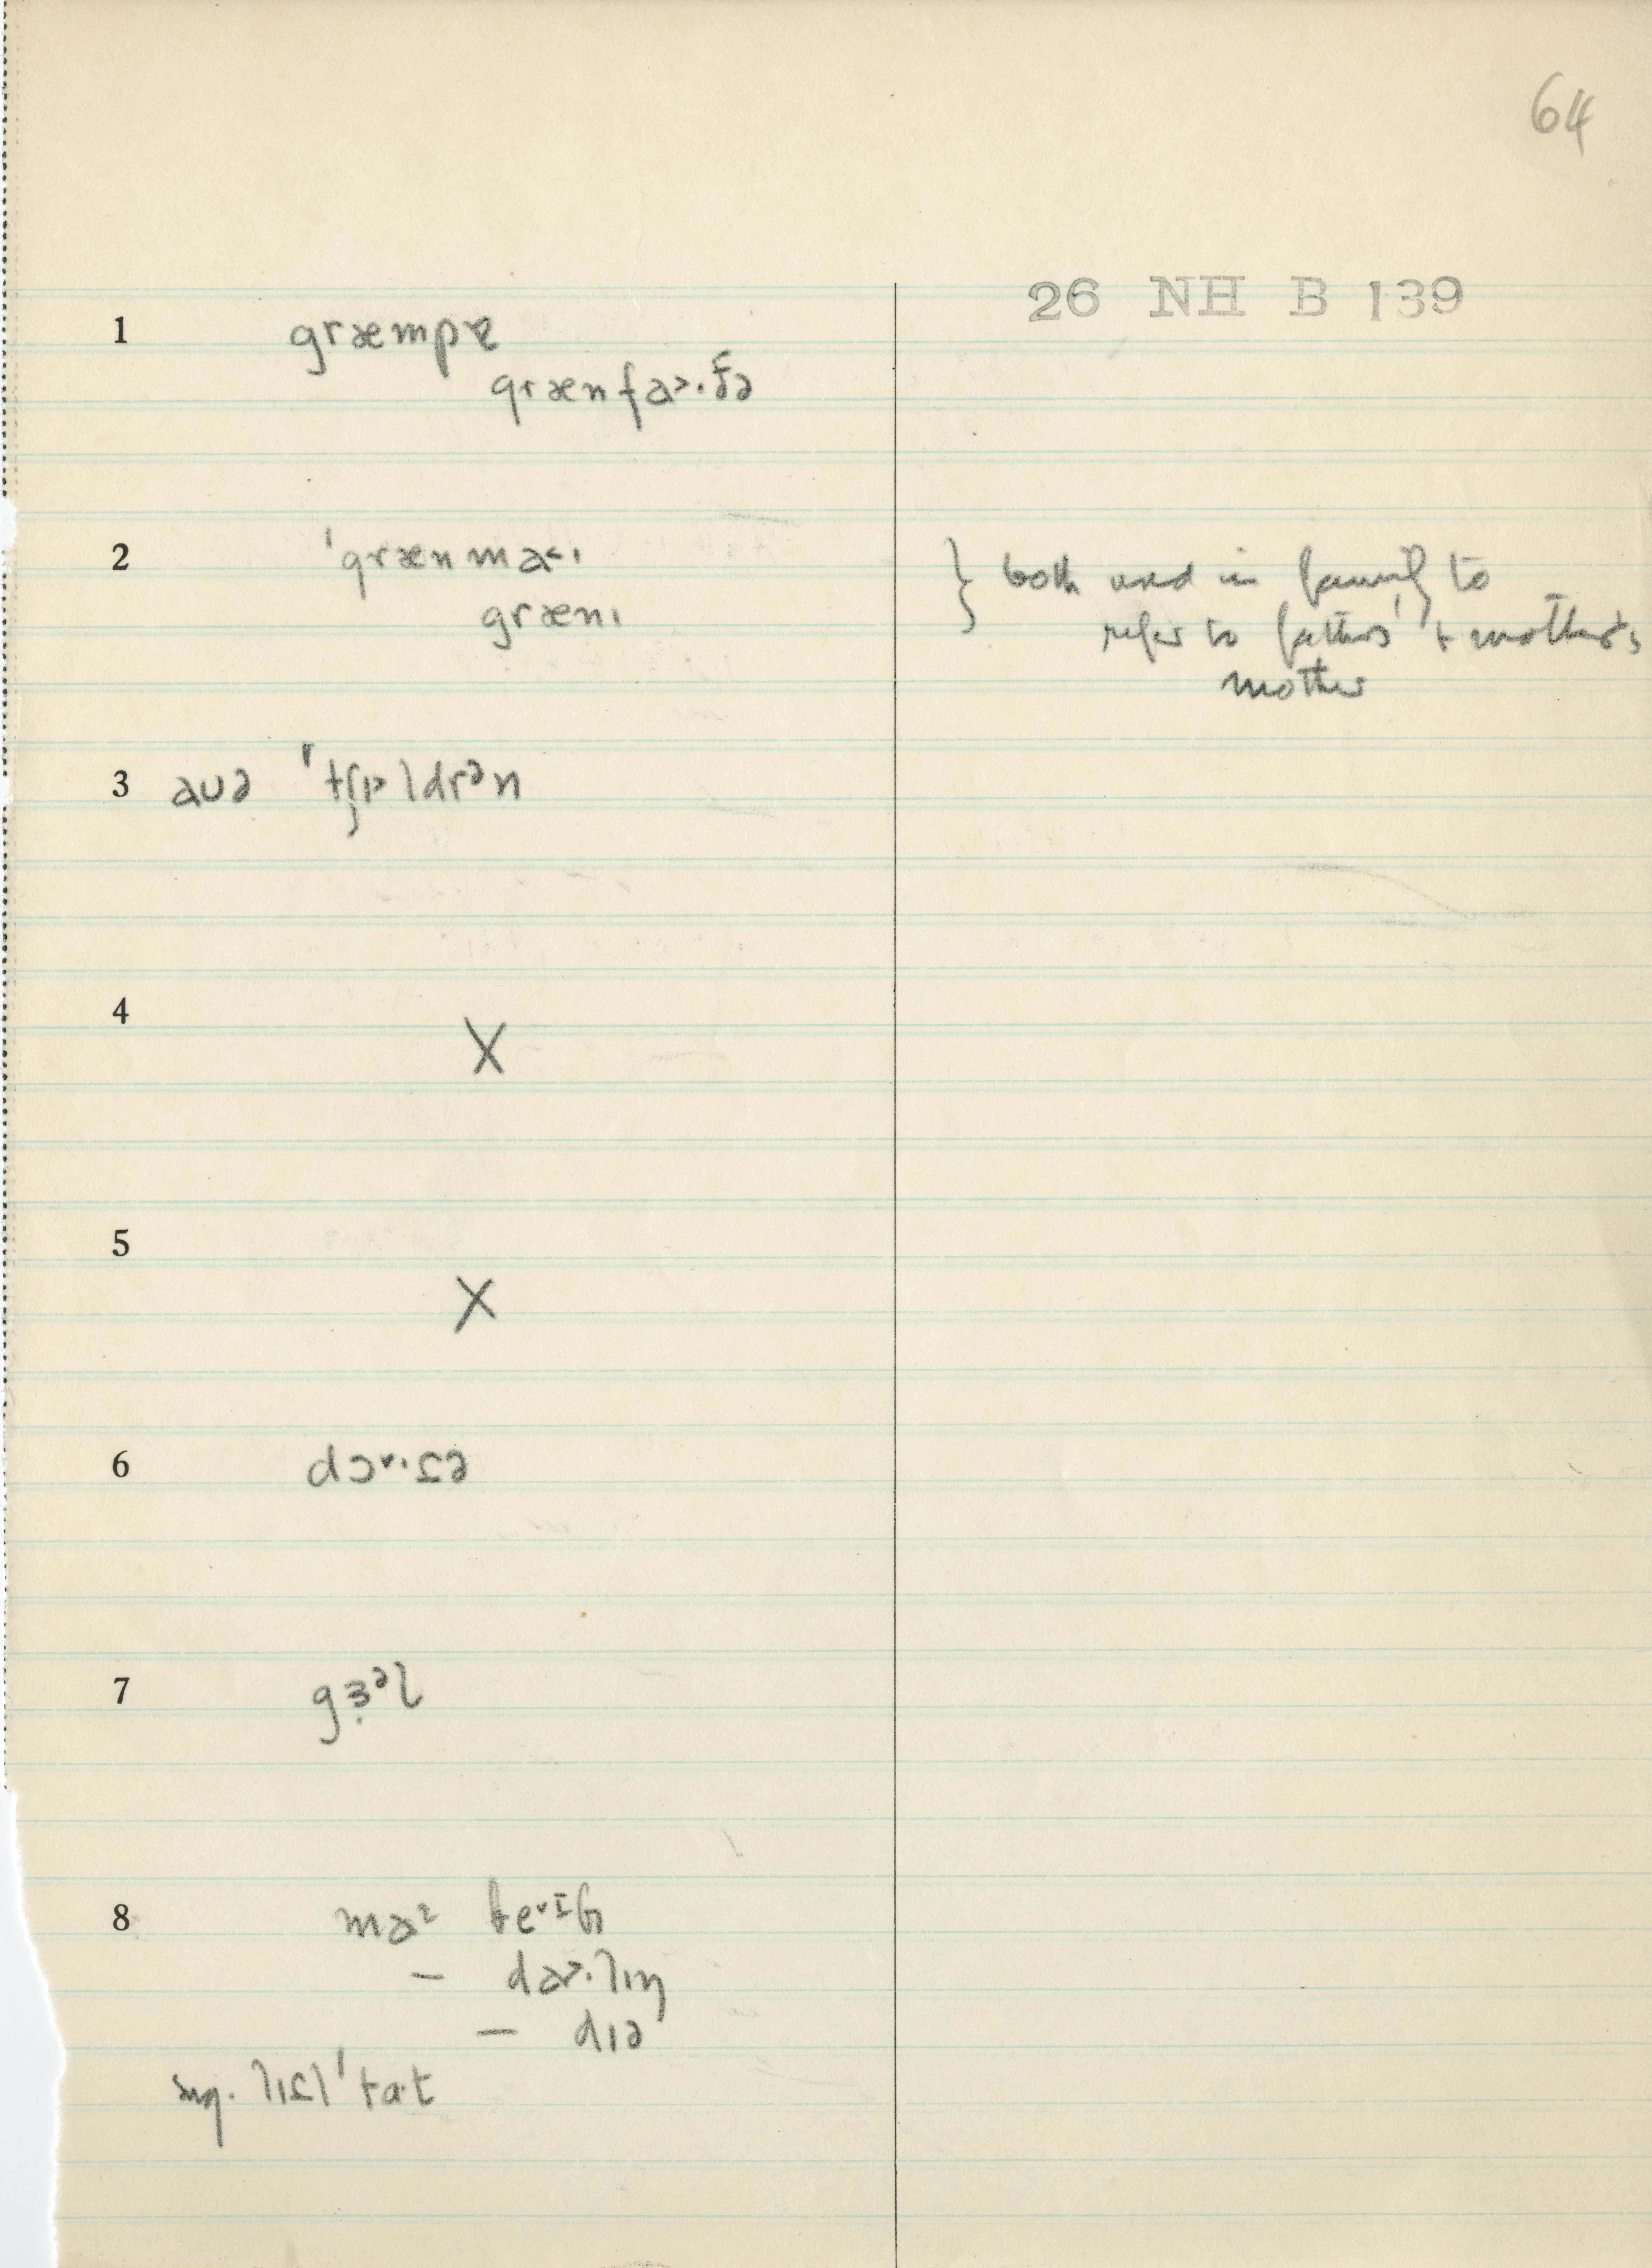 64
26 NH B 139
1 græmpɐ
grænfa>·ðə
2 ˈgrænma<ɪ
grænɪ
} both used in family to
refer to father's + mother's
mother
3 aʊə ˈtʃɒ>ldrᵊn
4 X
5 X
6 dɔ˅·tə
7 gɜᵊl
8 beˇɪbɪ
— da>·lɪŋ
— dɪə
sug. lɪtl ˈtɑ·t